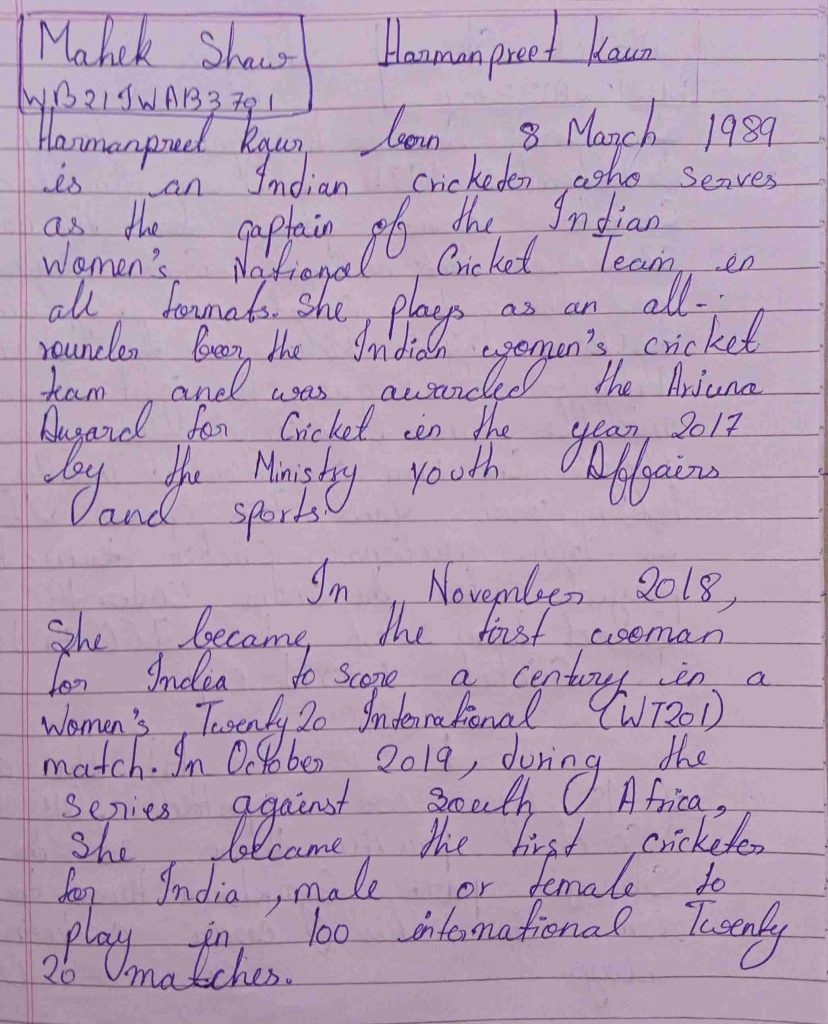 Mahek Shaw
Harmanpreet Kaur
WB21JWAB3791
Harmanpreet Kaur, born 8 March 1989
is an Indian cricketer who serves
as the captain of the Indian
Women's National Cricket Team in
all formats. She plays as an all-
rounder for the Indian women's cricket
team and was awarded the Arjuna
Award for Cricket in the year 2017
by the Ministry Youth Affairs
and sports.
In November 2018,
She became the first woman
for India to score a century in a
Women's Twenty20 International (WT20I)
match. In October 2019, during the
series against South Africa,
She became the first cricketer
for India, male or female to
play in 100 international Twenty
20 matches.